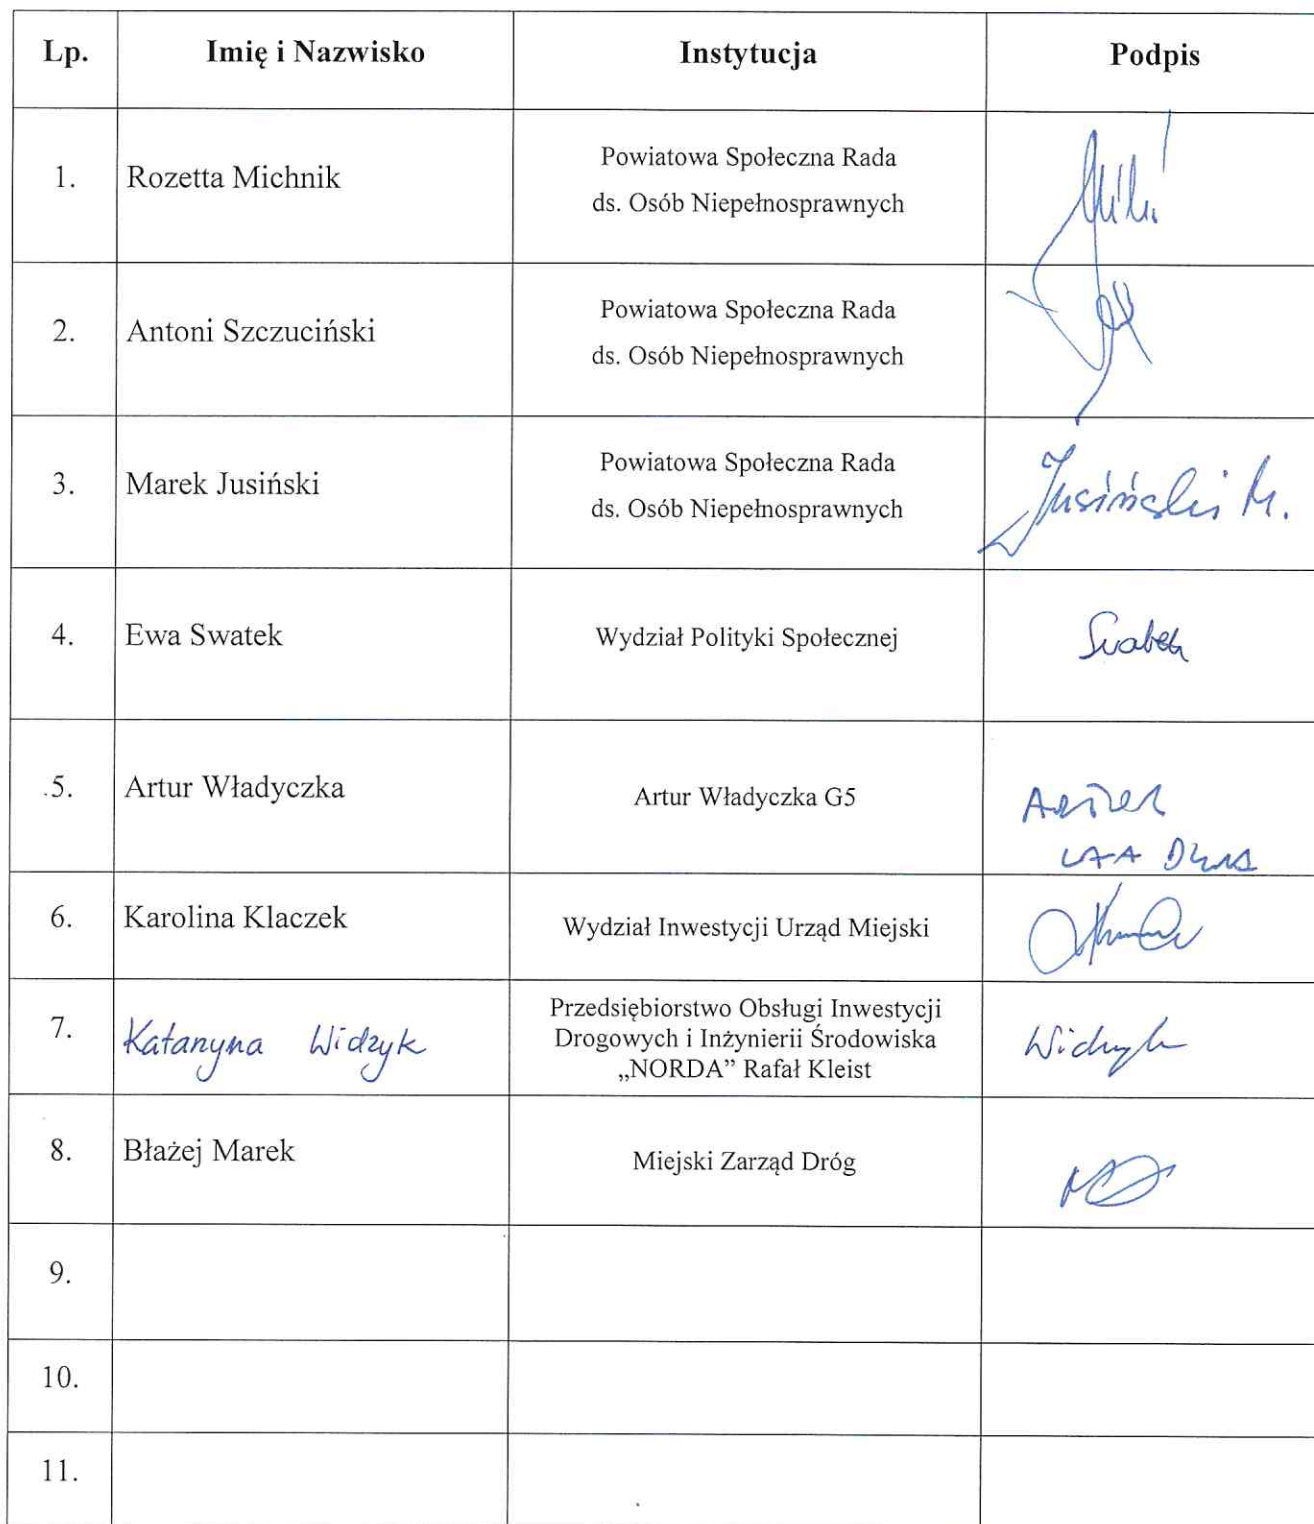 Lp. Imię i Nazwisko Instytucja Podpis
1. Rozetta Michnik Powiatowa Społeczna Rada
ds. Osób Niepełnosprawnych
2. Antoni Szczuciński Powiatowa Społeczna Rada
ds. Osób Niepełnosprawnych
3. Marek Jusiński Powiatowa Społeczna Rada
ds. Osób Niepełnosprawnych Jusiński M.
4. Ewa Swatek Wydział Polityki Społecznej Swatek
5. Artur Władyczka Artur Władyczka G5
6. Karolina Klaczek Wydział Inwestycji Urząd Miejski
7. Katarzyna Widzyk Przedsiębiorstwo Obsługi Inwestycji
Drogowych i Inżynierii Środowiska
„NORDA” Rafał Kleist Widzyk
8. Błażej Marek Miejski Zarząd Dróg
9.
10.
11.